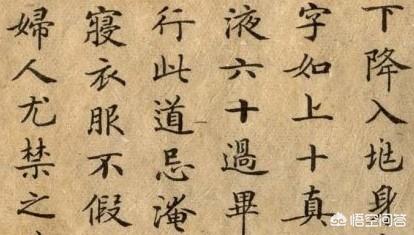 下降入兆身
字如上十真
液六十過畢
行此道忌淹
寢衣服不假
婦人尤禁之
悟空问答